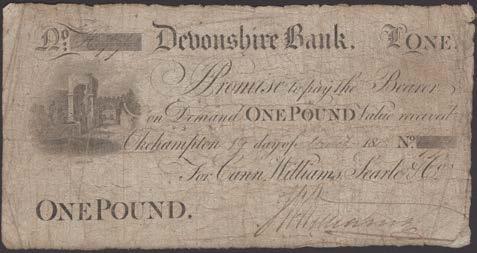 No. Devonshire Bank. £ONE.
I Promise to pay the Bearer
on Demand ONE POUND Value received
Okehampton 19 day of 18 No.
For Cann, Williams, Searle & Co.
ONE POUND.